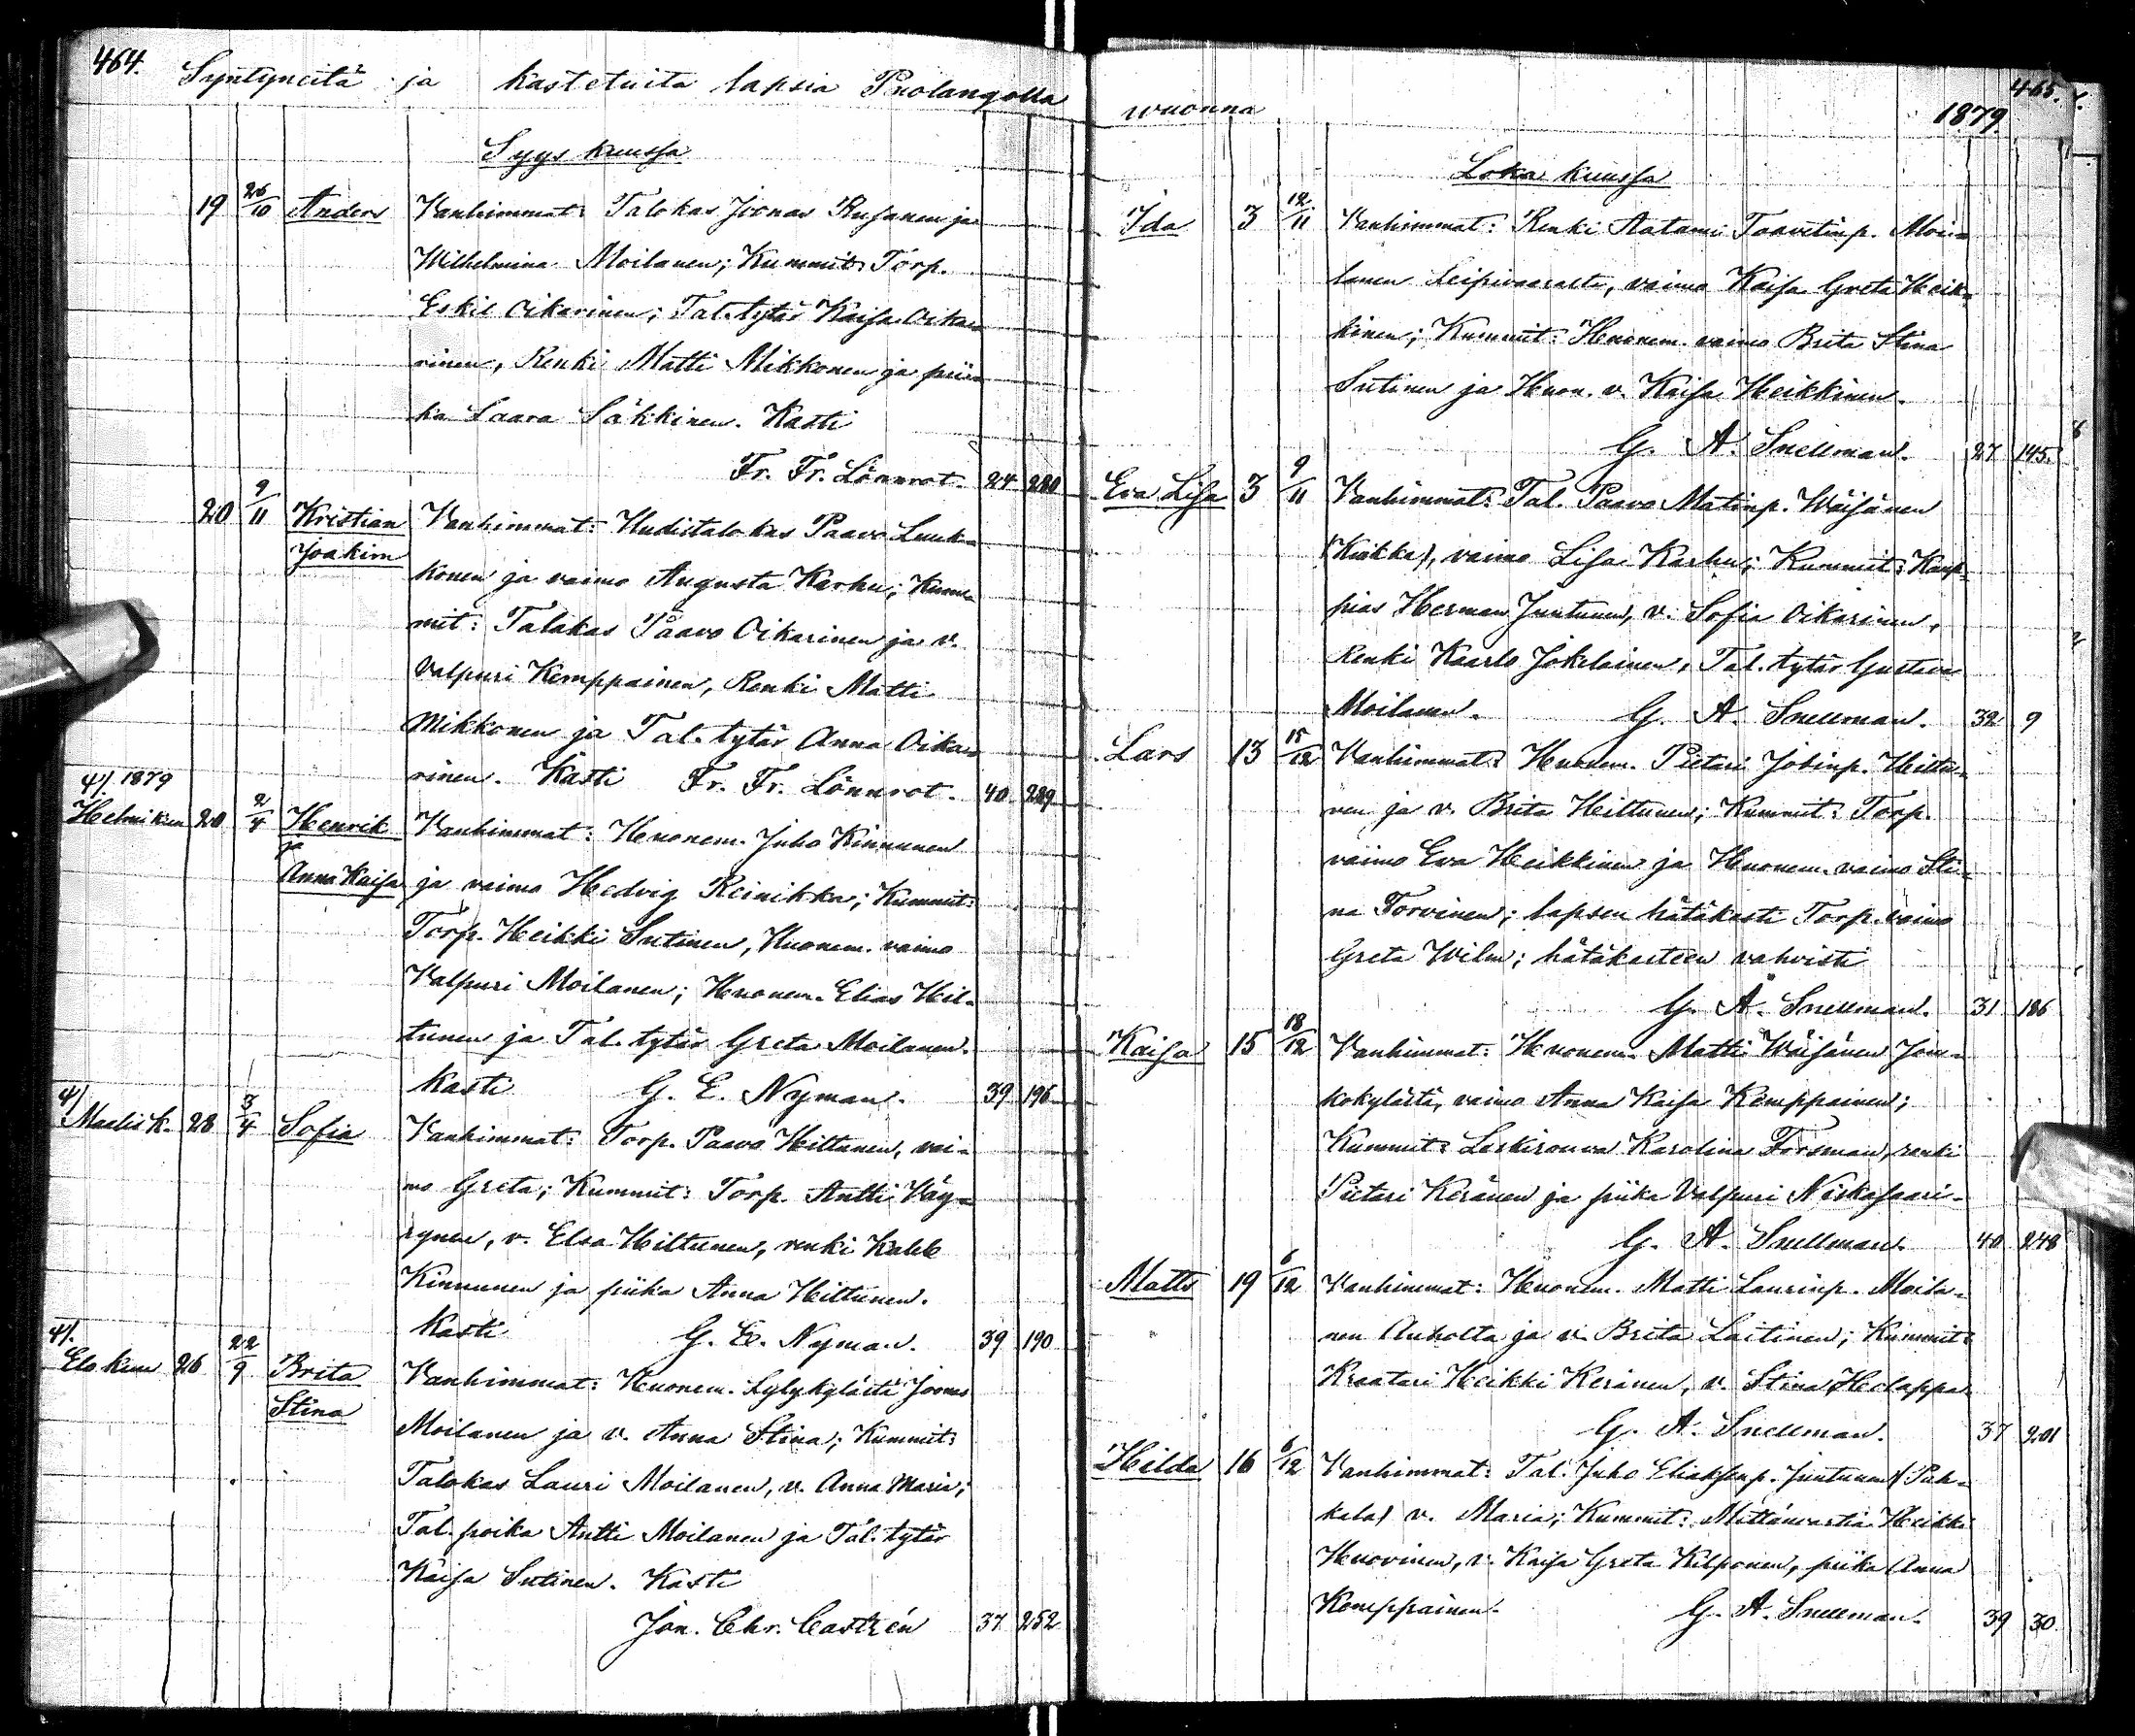 464. Syntyneitä ja kastetuita lapsia Puolangolla
Syyskuussa
19 26/10 Anders Vanhimmat: Talokas Joonas Rusanen ja
Wilhelmina Moilanen; Kummit: Torp.
Eskil Oikarinen; Tal. tytär Kaisa Oika-
rinen, Renki Matti Mikkonen ja pii-
ka Saara Säkkinen. Kasti
Fr. Fr. Lönnrot. 24 280
20 9/11 Kristian Vanhimmat: Uudistalokas Paavo Luuk-
Joakim
konen ja vaimo Augusta Karhu; Kum-
mit: Talakas Paavo Oikarinen ja v.
Valpuri Kemppainen, Renki Matti
Mikkonen ja Tal. tytär Anna Oika-
rinen. Kasti Fr. Fr. Lönnrot. 40 289
4/. 1879
Helmikuu 20 2/4 Henrik Vanhimmat: Huonem. Juho Kinnunen
ja
Anna Kaisa ja vaimo Hedvig Reinikka; Kummit:
Torp. Heikki Sutinen, Huonem. vaimo
Valpuri Moilanen; Huonem. Elias Hil-
tunen ja Tal. tytär Greta Moilanen.
Kasti G. E. Nyman. 39 196
4/
Maalis k. 28 3/4 Sofia Vanhimmat: Torp. Paavo Hiltunen, vai-
mo Greta; Kummit: Torp. Antti Väy-
rynen, v. Elsa Hiltunen, renki Kaleb
Kinnunen ja piika Anna Hiltunen.
Kasti G. E. Nyman. 39 190
4/.
Elokuu 26 22/9 Brita Vanhimmat: Huonem. Lylykylästä Joonas
Stina
Moilanen ja v. Anna Stina; Kummit:
Talokas Lauri Moilanen, v. Anna Maria;
Tal. poika Antti Moilanen ja Tal. tytär
Kaisa Sutinen. Kasti
Jon. Chr. Castrén 37 252
wuonna 1879. 465.
Lokakuussa
Ida 3 12/11 Vanhimmat: Renki Aatami Taavetinp. Moi-
lanen Leipivaaralta, vaimo Kaisa Greta Heik-
kinen; Kummit: Huonem. vaimo Brita Stina
Sutinen ja Huon. v. Kaisa Heikkinen.
G. A. Snellman. 27 145.
Eva Lisa 3 9/11 Vanhimmat: Tal. Paavo Matinp. Wäisänen
(Kiekka), vaimo Lisa Karhu; Kummit: Kaup-
pias Herman Juntunen, v. Sofia Oikarinen,
Renki Kaarlo Jokelainen, Tal. tytär Gustava
Moilanen. G. A. Snellman. 32 9
Lars 13 15/12 Vanhimmat: Huonem. Pietari Jobinp. Hiltu-
nen ja v. Brita Hiltunen; Kummit: Torp.
vaimo Eva Heikkinen ja Huonem. vaimo Sti-
na Torvinen; lapsen hätäkasti Torp. vaimo
Greta Wilm; hätäkasteen vahvisti
G. A. Snellman. 31 186
Kaisa 15 18/12 Vanhimmat: Huonem. Matti Wäisänen Jou-
kokylästä, vaimo Anna Kaisa Kemppainen;
Kummit: Leskirouva Karolina Forsman, renki
Pietari Keränen ja piika Valpuri Niskasaari.
G. A. Snellman. 40 248
Matts 19 6/12 Vanhimmat: Huonem. Matti Laurinp. Moila-
nen Auholta ja v. Brita Laitinen; Kummit:
Kraatari Heikki Keränen, v. Stina Heolappa.
G. A. Snellman. 37 201
Hilda 16 6/12 Vanhimmat: Tal. Juho Eliaksenp. Juntunen (Pak-
kala) v. Maria; Kummit: Mittauvartia Heikki
Huovinen, v. Kaisa Greta Kilponen, piika Anna
Kemppainen. G. A. Snellman. 39 30